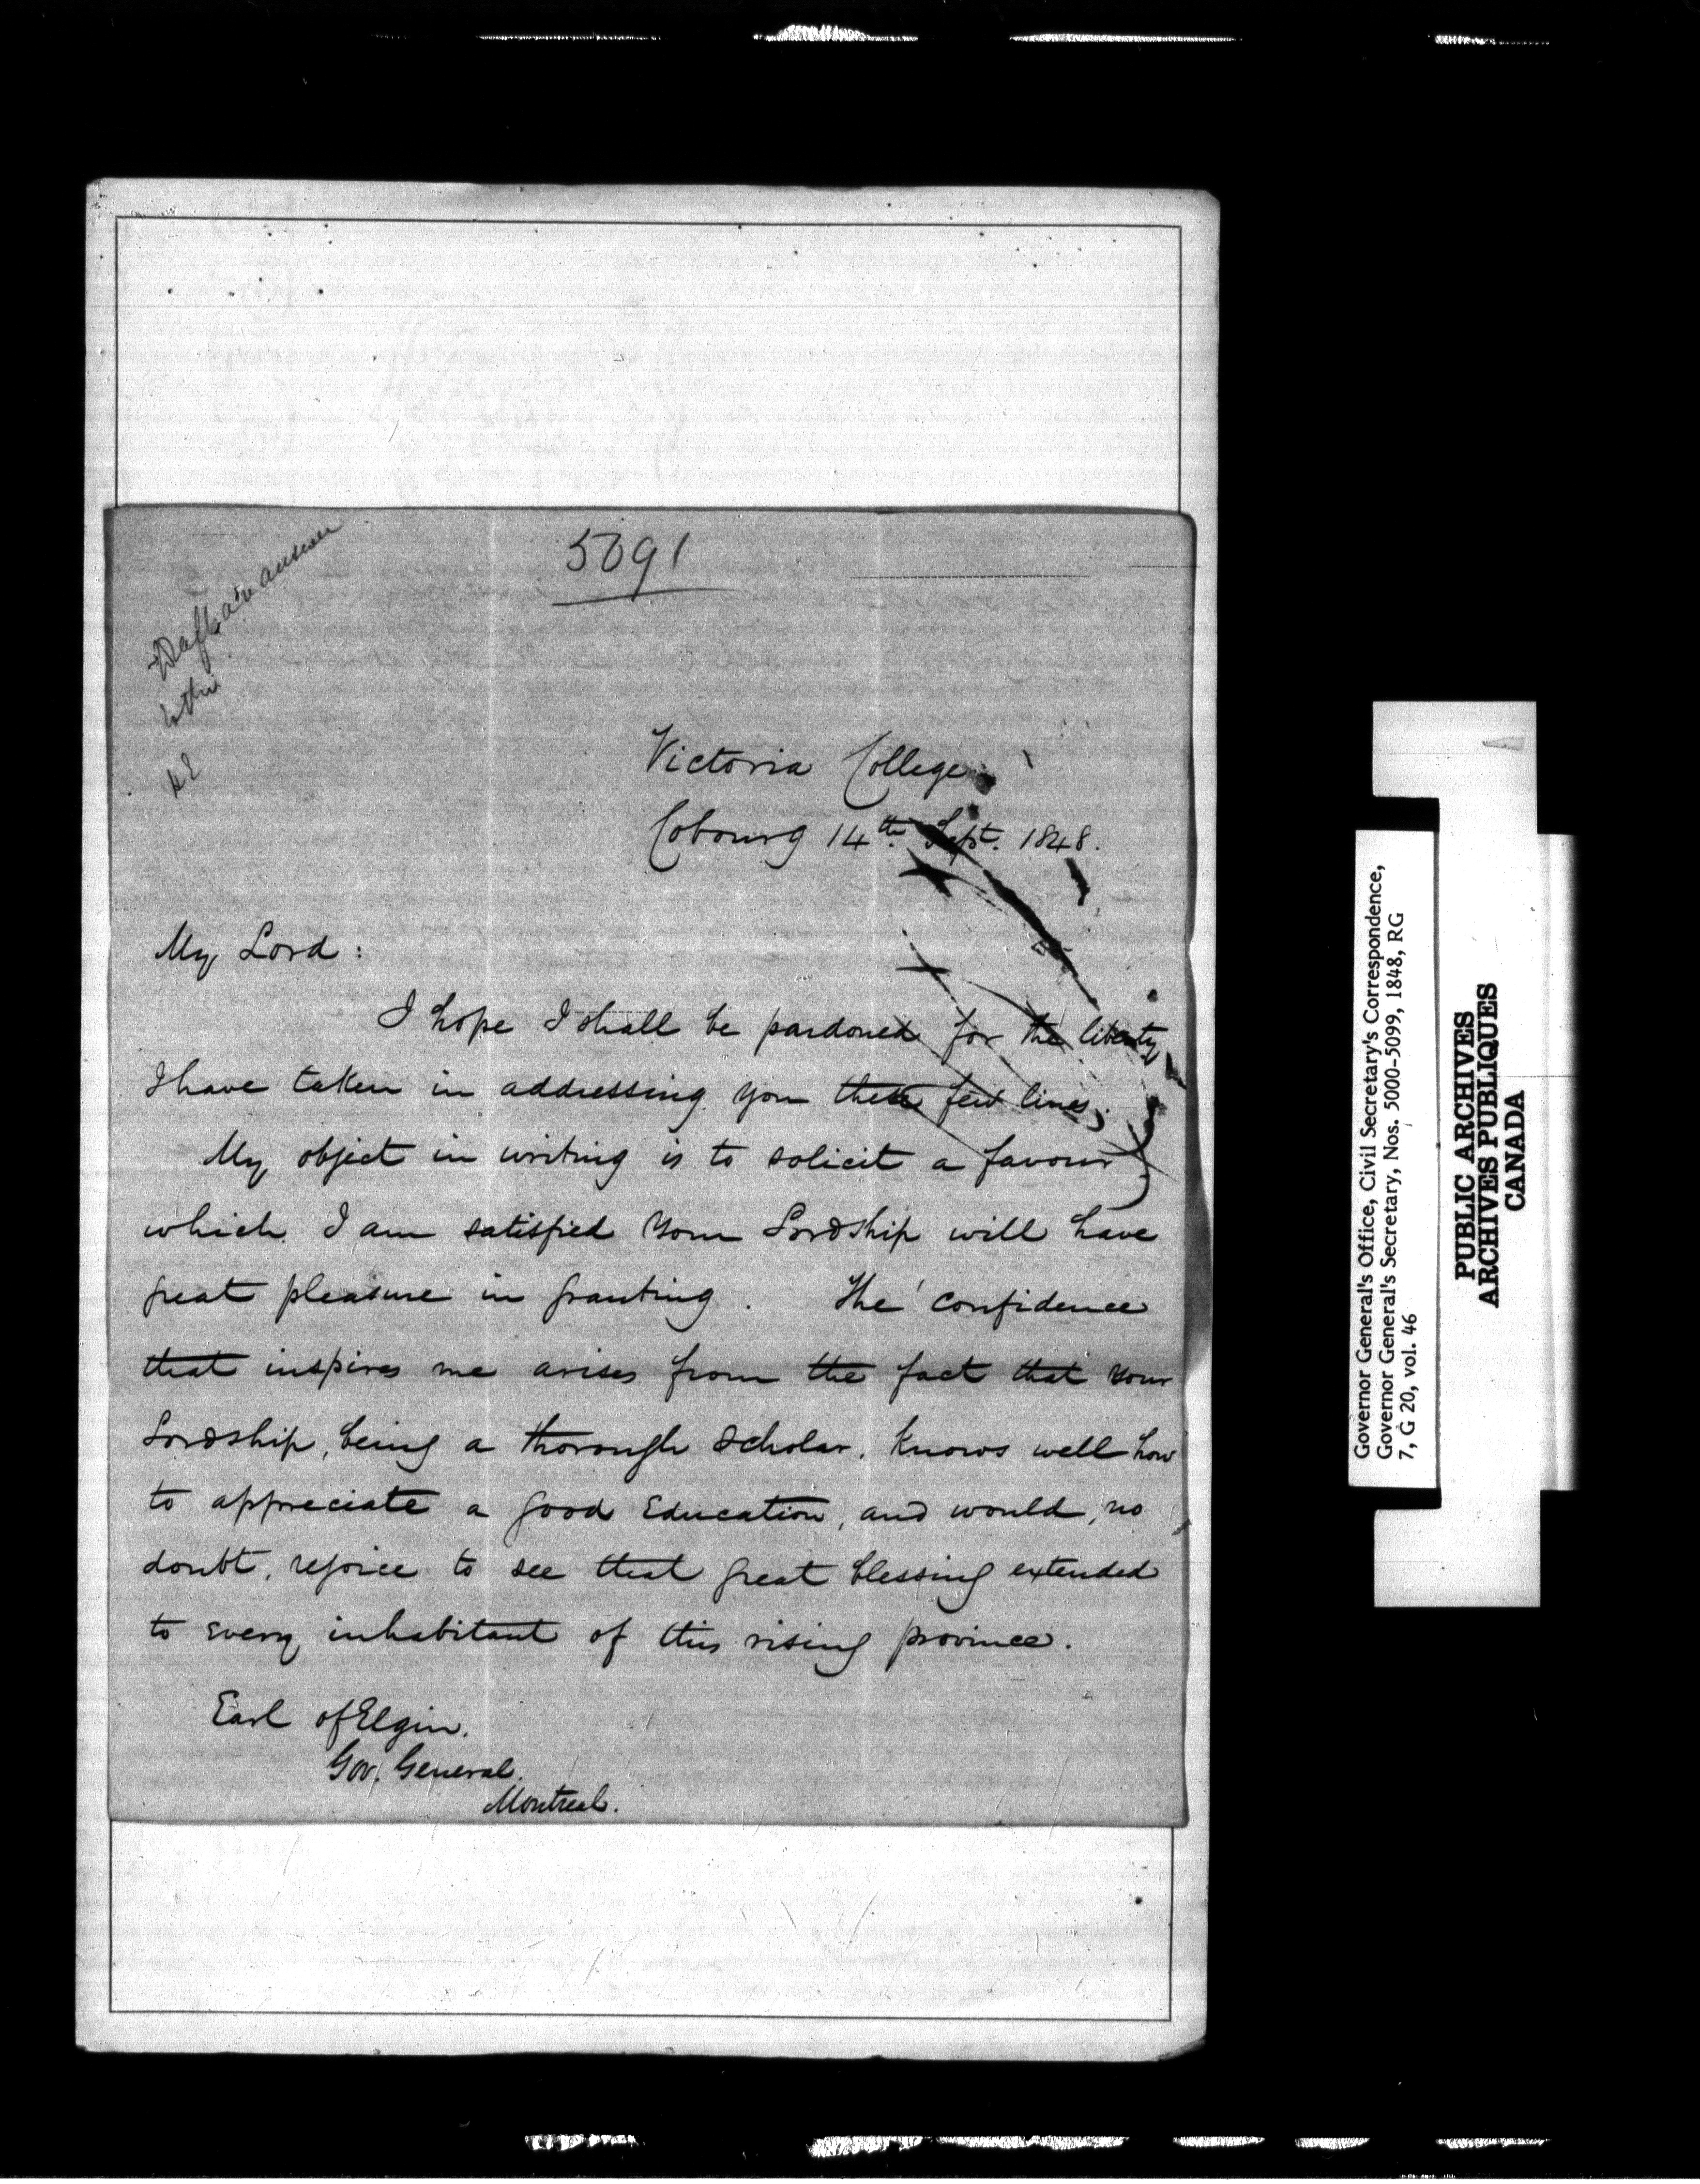 5091
Draft an answer
to this
Victoria College
Cobourg 14th. Sept. 1848.
My Lord:
I hope I shall be pardoned for the liberty
I have taken in addressing you these few lines.
My object in writing is to solicit a favour
which I am satisfied your Lordship will have
great pleasure in granting. The confidence
that inspires me arises from the fact that your
Lordship, being a thorough scholar, knows well how
to appreciate a good Education, and would, no
doubt, rejoice to see that great blessing extended
to every inhabitant of this rising province.
Earl of Elgin.
Gov. General.
Montreal.
Governor General's Office, Civil Secretary's Correspondence,
Governor General's Secretary, Nos. 5000-5099, 1848, RG
7, G 20, vol. 46
PUBLIC ARCHIVES
ARCHIVES PUBLIQUES
CANADA